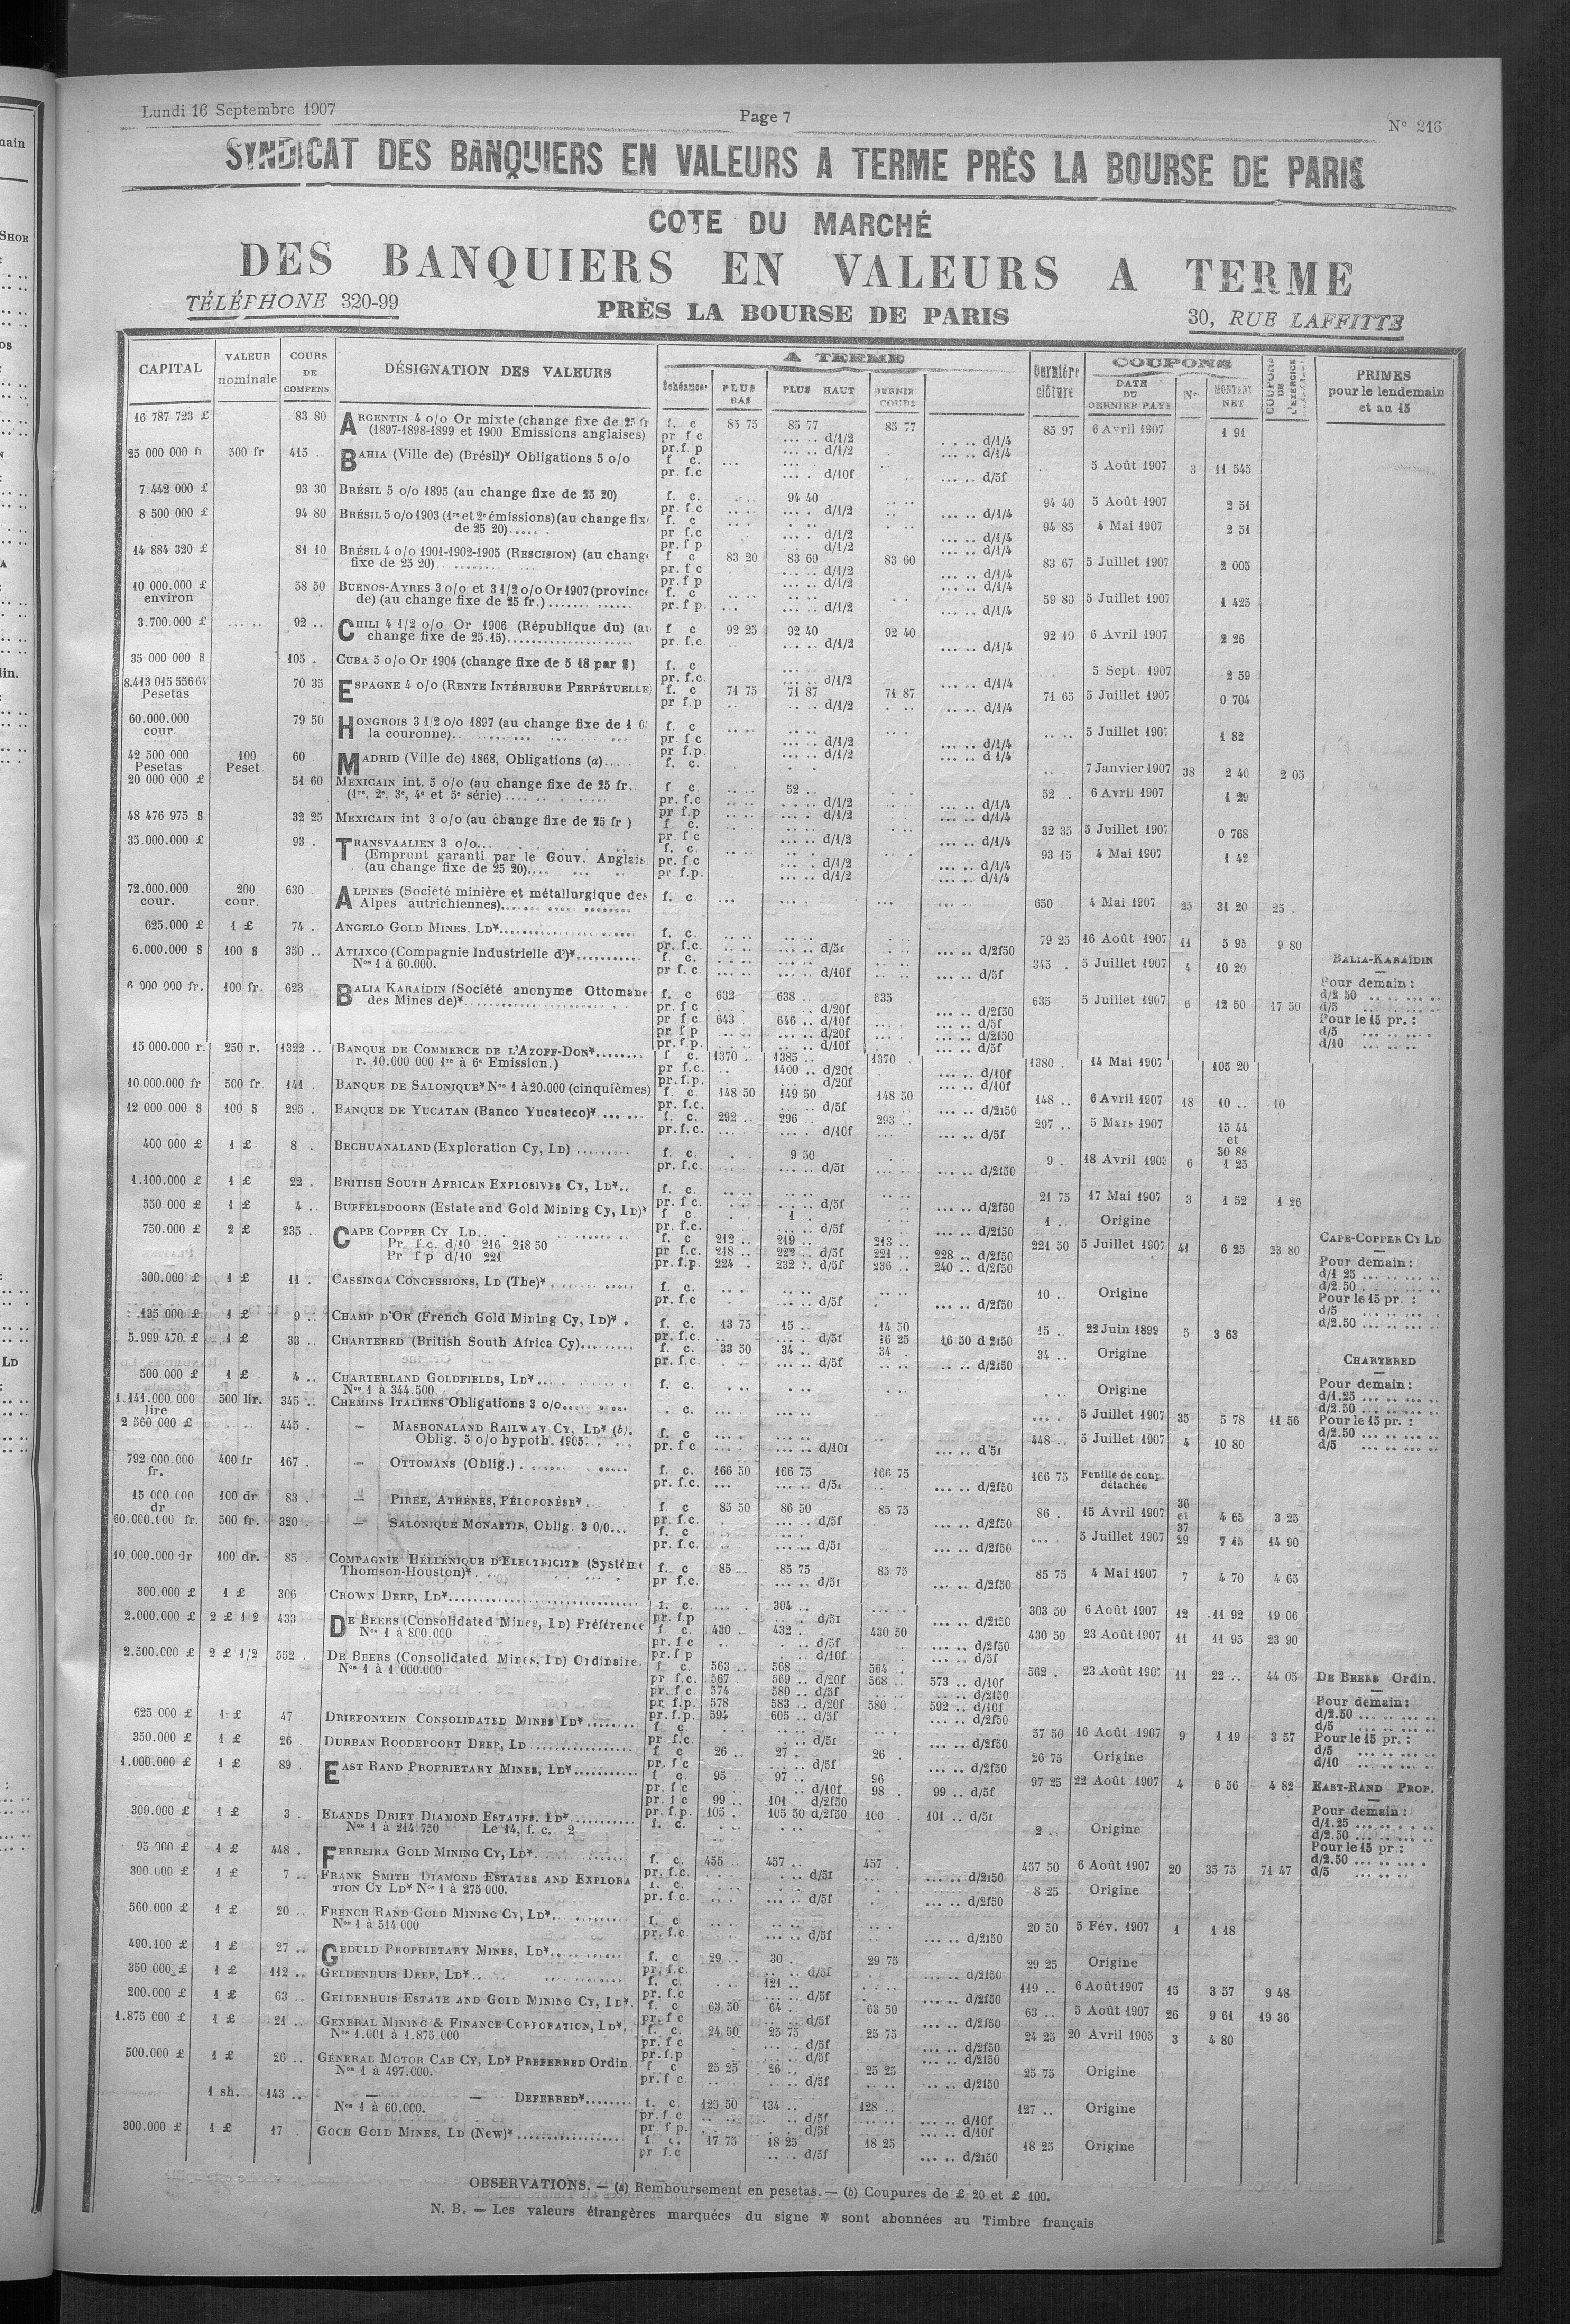 Lundi 16 Septembre 1907
Page 7
N° 216
SYNDICAT DES BANQUIERS EN VALEURS A TERME PRÈS LA BOURSE DE PARIS
COTE DU MARCHÉ
DES BANQUIERS EN VALEURS A TERME
TÉLÉPHONE 320-99
PRÈS LA BOURSE DE PARIS
30, RUE LAFFITTE
CAPITAL
VALEUR nominale
COURS DE COMPENS.
DÉSIGNATION DES VALEURS
A TERME
Echéances
PLUS BAS
PLUS HAUT
DERNIER COURS
Dernière clôture
COUPONS
DATE DU DERNIER PAYÉ
Nos
MONTANT NET
PRIMES pour le lendemain et au 15
16 787 723 £ 83 80 ARGENTIN 4 o/o Or mixte (change fixe de 25 fr f. c 85 75 85 77 85 77 85 97 6 Avril 1907 1 91
(1897-1898-1899 et 1900 Emissions anglaises) pr f c .... .. d/1/2 .... .. d/1/4
pr.f.p .... .. d/1/2 .... .. d/1/4
25 000 000 fr 500 fr 415 .. BAHIA (Ville de) (Brésil)* Obligations 5 o/o f c. 5 Août 1907 3 11 545
pr. f.c .... . d/10f .... .. d/5f
7.442 000 £ 93 30 BRÉSIL 5 o/o 1895 (au change fixe de 25 20) f. c. 94 40 94 40 5 Août 1907 2 51
pr. f.c d/1/2 d/1/4
8 500 000 £ 94 80 BRÉSIL 5 o/o 1903 (1re et 2e émissions) (au change fixe f. c 94 85 4 Mai 1907 2 51
de 25 20)..... pr f.c d/1/2 d/1/4
pr.f p d/1/2 d/1/4
14 884 320 £ 81 10 BRÉSIL 4 o/o 1901-1902-1905 (RESCISION) (au change f c 83 20 83 60 83 60 83 67 5 Juillet 1907 2 005
fixe de 25 20) pr. f c d/1/2 d/1/4
pr. f p d/1/2 d/1/4
10 000.000 £ environ 58 50 BUENOS-AYRES 3 o/o et 3 1/2 o/o Or 1907 (province f. c 59 80 5 Juillet 1907 1 425
de) (au change fixe de 25 fr.) pr. f p. d/1/2 d/1/4
3.700.000 £ 92 .. CHILI 4 1/2 o/o Or 1906 (République du) (au f c 92 25 92 40 92 40 92 10 6 Avril 1907 2 26
change fixe de 25.15) pr. f.c. d/1/2 d/1/4
35 000 000 $ 105 . CUBA 5 o/o Or 1904 (change fixe de 5 18 par $) f. c 5 Sept 1907 2 59
pr. f.c. d/1/2 d/1/4
8.413 015 55664 Pesetas 70 35 ESPAGNE 4 o/o (RENTE INTÉRIEURE PERPÉTUELLE) f. c 71 75 71 87 71 87 71 65 5 Juillet 1907 0 704
pr f.p d/1/2 d/1/4
60.000.000 cour. 79 50 HONGROIS 3 1/2 o/o 1897 (au change fixe de 1 0 f. c 5 Juillet 1907 1 82
la couronne) pr f c d/1/2 d/1/4
pr f.p. d/1/2 d 1/4
42 500 000 Pesetas 100 Peset. 60 MADRID (Ville de) 1868, Obligations (a) f. c. 7 Janvier 1907 38 2 40 2 05
20 000 000 £ 51 60 MEXICAIN int. 5 o/o (au change fixe de 25 fr. f. c. 52 .. 52 . 6 Avril 1907 1 29
(1re, 2e, 3e, 4e et 5e série) pr. f.c d/1/2 d/1/4
pr f.p d/1/2 d/1/4
48 476 975 $ 32 25 MEXICAIN int 3 o/o (au change fixe de 25 fr ) f c. 32 35 5 Juillet 1907 0 768
pr. f c d/1/2 d/1/4
35.000.000 £ 93 . TRANSVAALIEN 3 o/o f. c. 93 15 4 Mai 1907 1 42
(Emprunt garanti par le Gouv. Anglais pr. f c d/1/2 d/1/4
(au change fixe de 25 20) pr f.p. d/1/2 d/1/4
72.000.000 cour. 200 cour. 630 ALPINES (Société minière et métallurgique des f. c. 650 4 Mai 1907 25 31 20 25 .
Alpes autrichiennes)
625.000 £ 1 £ 74 .. ANGELO GOLD MINES, LD* f. c. 79 25 16 Août 1907 11 5 95 9 80
pr. f.c. d/5f d/2f50
6.000.000 $ 100 $ 350 .. ATLIXCO (Compagnie Industrielle d')* f. c. 345 . 5 Juillet 1907 4 10 20
Nos 1 à 60.000. pr f.c d/10f d/5f
6 900 000 fr. 100 fr. 623 BALIA KARAÏDIN (Société anonyme Ottomane f. c 632 638 . 635 635 5 Juillet 1907 6 12 50 17 50
des Mines de)* pr f c d/20f d/2f50
pr f c 643 646 .. d/10f d/5f
pr f p d/20f d/2f50
pr. f p. d/10f d/5f
BALIA-KARAÏDIN
Pour demain :
d/2 50
d/5
Pour le 15 pr. :
d/5
d/10
15 000.000 r. 250 r. 1322 .. BANQUE DE COMMERCE DE L'AZOFF-DON* f c. 1370 .. 1385 .. 1370 . 1380 . 14 Mai 1907 105 20
r. 10.000 000 1re à 6e Emission.) pr f.c. 1400 .. d/20f d/10f
pr. f.p. d/20f d/10f
10.000.000 fr 500 fr. 141 BANQUE DE SALONIQUE* Nos 1 à 20.000 (cinquièmes) f. c. 148 50 149 50 148 50 148 .. 6 Avril 1907 18 10 .. 10
pr. f.c. d/5f d/2f50
12 000 000 $ 100 $ 295 . BANQUE DE YUCATAN (Banco Yucateco)* f. c. 292 .. 296 293 .. 297 .. 5 Mars 1907 15 44 et 30 88
pr. f.c. d/10f d/5f
400 000 £ 1 £ 8 . BECHUANALAND (Exploration Cy, LD) f. c. 9 50 9 . 18 Avril 1903 6 1 25
pr. f.c. d/5f d/2f50
1.100.000 £ 1 £ 22 . BRITISH SOUTH AFRICAN EXPLOSIVES CY, LD* f. c. 21 75 17 Mai 1907 3 1 52 1 26
pr. f c. d/5f d/2f50
550.000 £ 1 £ 4 .. BUFFELSDOORN (Estate and Gold Mining Cy, LD)* f. c 1 1 .. Origine
pr. f.c. d/5f d/2f50
750.000 £ 2 £ 235 . CAPE COPPER CY LD f. c 212 .. 219 .. 213 .. 221 50 5 Juillet 1907 41 6 25 23 80
Pr. f.c. d/10 216 218 50 pr. f.c. 218 .. 222 .. d/5f 221 .. 228 .. d/2f50
Pr f p d/10 221 pr. f.p. 224 . 232 .. d/5f 236 .. 240 .. d/2f50
CAPE-COPPER CY LD
Pour demain :
d/1 25
d/2.50
Pour le 15 pr. :
d/5
d/2.50
300.000 £ 1 £ 11 . CASSINGA CONCESSIONS, LD (The)* f. c. 10 .. Origine
pr. f.c d/5f d/2f50
135 000 £ 1 £ 9 .. CHAMP D'OR (French Gold Mining Cy, LD)* f. c. 13 75 15 .. 14 50 15 .. 22 Juin 1899 5 3 63
pr. f.c. d/5f 16 25 16 50 d 2f50
5.999 470 £ 1 £ 33 .. CHARTERED (British South Africa Cy) f. c. 33 50 34 .. 34 . 34 .. Origine
pr. f.c. d/5f d/2f50
CHARTERED
Pour demain :
d/1.25
d/2.50
Pour le 15 pr. :
d/2.50
d/5
500 000 £ 1 £ 4 .. CHARTERLAND GOLDFIELDS, LD* f. c. Origine
Nos 1 à 344.500
1.141.000 000 lire 500 lir. 345 .. CHEMINS ITALIENS Obligations 3 o/o . c. 5 Juillet 1907 35 5 78 11 56
2 560 000 £ 445 . — MASHONALAND RAILWAY CY, LD* (b). f. c 448 .. 5 Juillet 1907 4 10 80
Oblig. 5 o/o hypoth. 1905 pr. f c d/10f d 5f
792.000.000 fr. 400 fr 167 . — OTTOMANS (Oblig.) f. c. 166 50 166 75 166 75 166 75 Feuille de coup. détachée
pr. f.c. d/5f d/2f50
15 000 000 dr 100 dr 83 . — PIRÉE, ATHÈNES, PÉLOPONÈSE* f. c 85 50 86 50 85 75 86 . 15 Avril 1907 36 et 37 4 65 3 25
pr. f.c. d/5f d/2f50
60.000.000 fr. 500 fr. 320 . — SALONIQUE MONASTIR, Oblig. 3 0/0 f. c 5 Juillet 1907 29 7 45 14 90
pr. f.c. d/5f d/2f50
10.000.000 dr 100 dr. 85 . COMPAGNIE HÉLLÉNIQUE D'ELECTRICITE (Système f. c 85 85 75 85 75 85 75 4 Mai 1907 7 4 70 4 65
Thomson-Houston)* pr f.c. d/5f d/2f50
300.000 £ 1 £ 306 CROWN DEEP, LD* f. c. 304 .. 303 50 6 Août 1907 12 11 92 19 06
pr. f.p d/5f d/2f50
2.000.000 £ 2 £ 1 2 433 DE BEERS (Consolidated Mines, LD) Préférence f. c. 430 .. 432 .. 430 50 430 50 23 Août 1907 11 11 95 23 90
Nos 1 à 800.000 pr. f c d/5f d/2f50
pr. f p d/10f d/5f
2.500.000 £ 2 £ 1/2 552 DE BEERS (Consolidated Mines, LD) Ordinaire. f c. 563 .. 568 .. 564 . 562 . 23 Août 1907 11 22 .. 44 05
Nos 1 à 1 000.000 pr f.c. 567 569 .. d/20f 568 .. 573 .. d/10f
pr. f c 574 580 .. d/5f d/2f50
pr. f.p. 578 583 .. d/20f 580 .. 592 .. d/10f
pr. f.p. 594 605 .. d/5f d/2f50
DE BEERS Ordin.
Pour demain :
d/2.50
d/5
Pour le 15 pr. :
d/5
d/10
625 000 £ 1 £ 47 DRIEFONTEIN CONSOLIDATED MINES LD* f c. 57 50 16 Août 1907 9 1 19 3 57
pr f.c d/5f d/2f50
350.000 £ 1 £ 26 DURBAN ROODEPOORT DEEP, LD f c 26 .. 27 . 26 . 26 75 Origine
pr. f c d/5f d/2f50
1.000.000 £ 1 £ 89 . EAST RAND PROPRIETARY MINES, LD* f c. 95 97 .. 96 97 25 22 Août 1907 4 6 56 4 82
pr. f c d/10f 98 . 99 .. d/5f
pr. f c 99 .. 101 d/2f50
pr. f.p. 105 . 105 50 d/2f50 100 . 101 .. d/5f
EAST-RAND PROP.
Pour demain :
d/1.25
d/2.50
Pour le 15 pr :
d/2.50
d/5
300.000 £ 1 £ 3 . ELANDS DRIFT DIAMOND ESTATES, LD* f. c. 2 .. Origine
Nos 1 à 214.750 Le 14, f. c. 2
95 000 £ 1 £ 448 . FERREIRA GOLD MINING CY, LD* f. c. 455 .. 457 .. 457 . 457 50 6 Août 1907 20 35 75 71 47
pr. f.c. d/5f d/2f50
300.000 £ 1 £ 7 .. FRANK SMITH DIAMOND ESTATES AND EXPLORA f. c. 8 25 Origine
TION CY LD* Nos 1 à 275 000. pr. f c. d/5f d/2f50
560.000 £ 1 £ 20 .. FRENCH RAND GOLD MINING CY, LD* f. c 20 50 5 Fév. 1907 1 1 18
Nos 1 à 514 000 pr. f.c. d/5f d/2f50
490.100 £ 1 £ 27 .. GEDULD PROPRIETARY MINES, LD* f. c 29 .. 30 . 29 75 29 25 Origine
pr. f.c. d/5f d/2f50
350 000 £ 1 £ 112 .. GELDENHUIS DEEP, LD* f. c. 121 .. 119 .. 6 Août 1907 15 3 57 9 48
pr. f.c d/5f d/2f50
200.000 £ 1 £ 63 .. GELDENHUIS ESTATE AND GOLD MINING CY, LD* f. c 63 50 64 . 63 50 63 .. 5 Août 1907 26 9 61 19 36
pr. f c d/5f d/2f50
1.875 000 £ 1 £ 21 .. GENERAL MINING & FINANCE CORPORATION, LD* f. c. 24 50 25 75 25 75 24 25 20 Avril 1905 3 4 80
Nos 1.001 à 1.875.000 pr. f c d/5f d/2f50
pr. f.p d/5f d/2f50
500.000 £ 1 £ 26 .. GÉNERAL MOTOR CAB CY, LD* PREFERRED Ordin. f. c 25 25 26 .. 25 25 25 75 Origine
Nos 1 à 497.000. pr. f c. d/5f d/2f50
1 sh. 143 .. — — DEFERRED* f. c. 125 50 134 .. 128 .. 127 .. Origine
Nos 1 à 60.000. pr. f c d/5f d/10f
pr f p. d/5f d/10f
300.000 £ 1 £ 17 . GOCH GOLD MINES, LD (New)* f c. 17 75 18 25 18 25 18 25 Origine
pr f.c d/5f d/2f50
OBSERVATIONS. — (a) Remboursement en pesetas. — (b) Coupures de £ 20 et £ 100.
N. B. — Les valeurs étrangères marquées du signe * sont abonnées au Timbre français